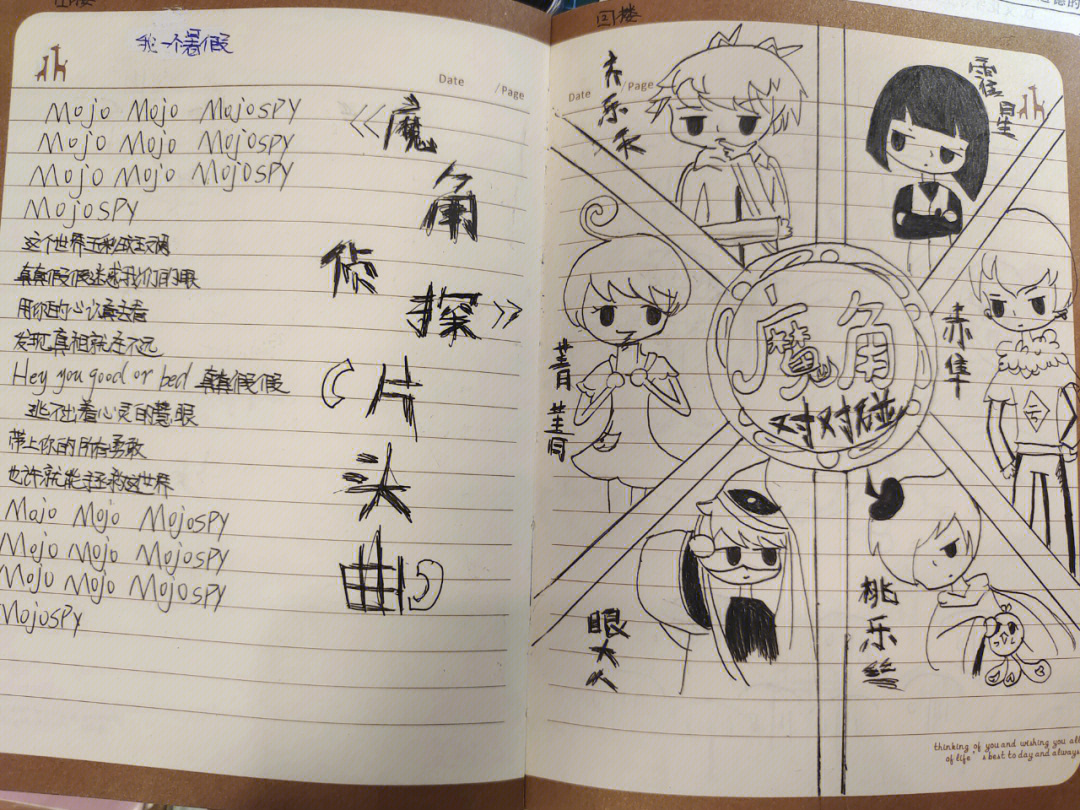 回楼
我一个暑假
Date /Page
Mojo Mojo MojoSPY
Mojo Mojo MojoSPY
Mojo Mojo MojoSPY
MojoSPY
这个世界五彩缤纷
真真假假迷惑我们的眼
用你的心认真去看
发现真相就在不远
Hey you good or bed 真真假假
逃不出着心灵的慧眼
带上你的所有勇敢
也许就能拯救这世界
Mojo Mojo MojoSPY
Mojo Mojo MojoSPY
Mojo Mojo MojoSPY
MojoSPY
《魔
角
侦
探》
(片
头
曲)
回楼
Date /Page
乐天
星
菁菁
赤隼
魔角
对对碰
眼大人
桃乐丝
thinking of you and wishing you all
of life's best to day and always